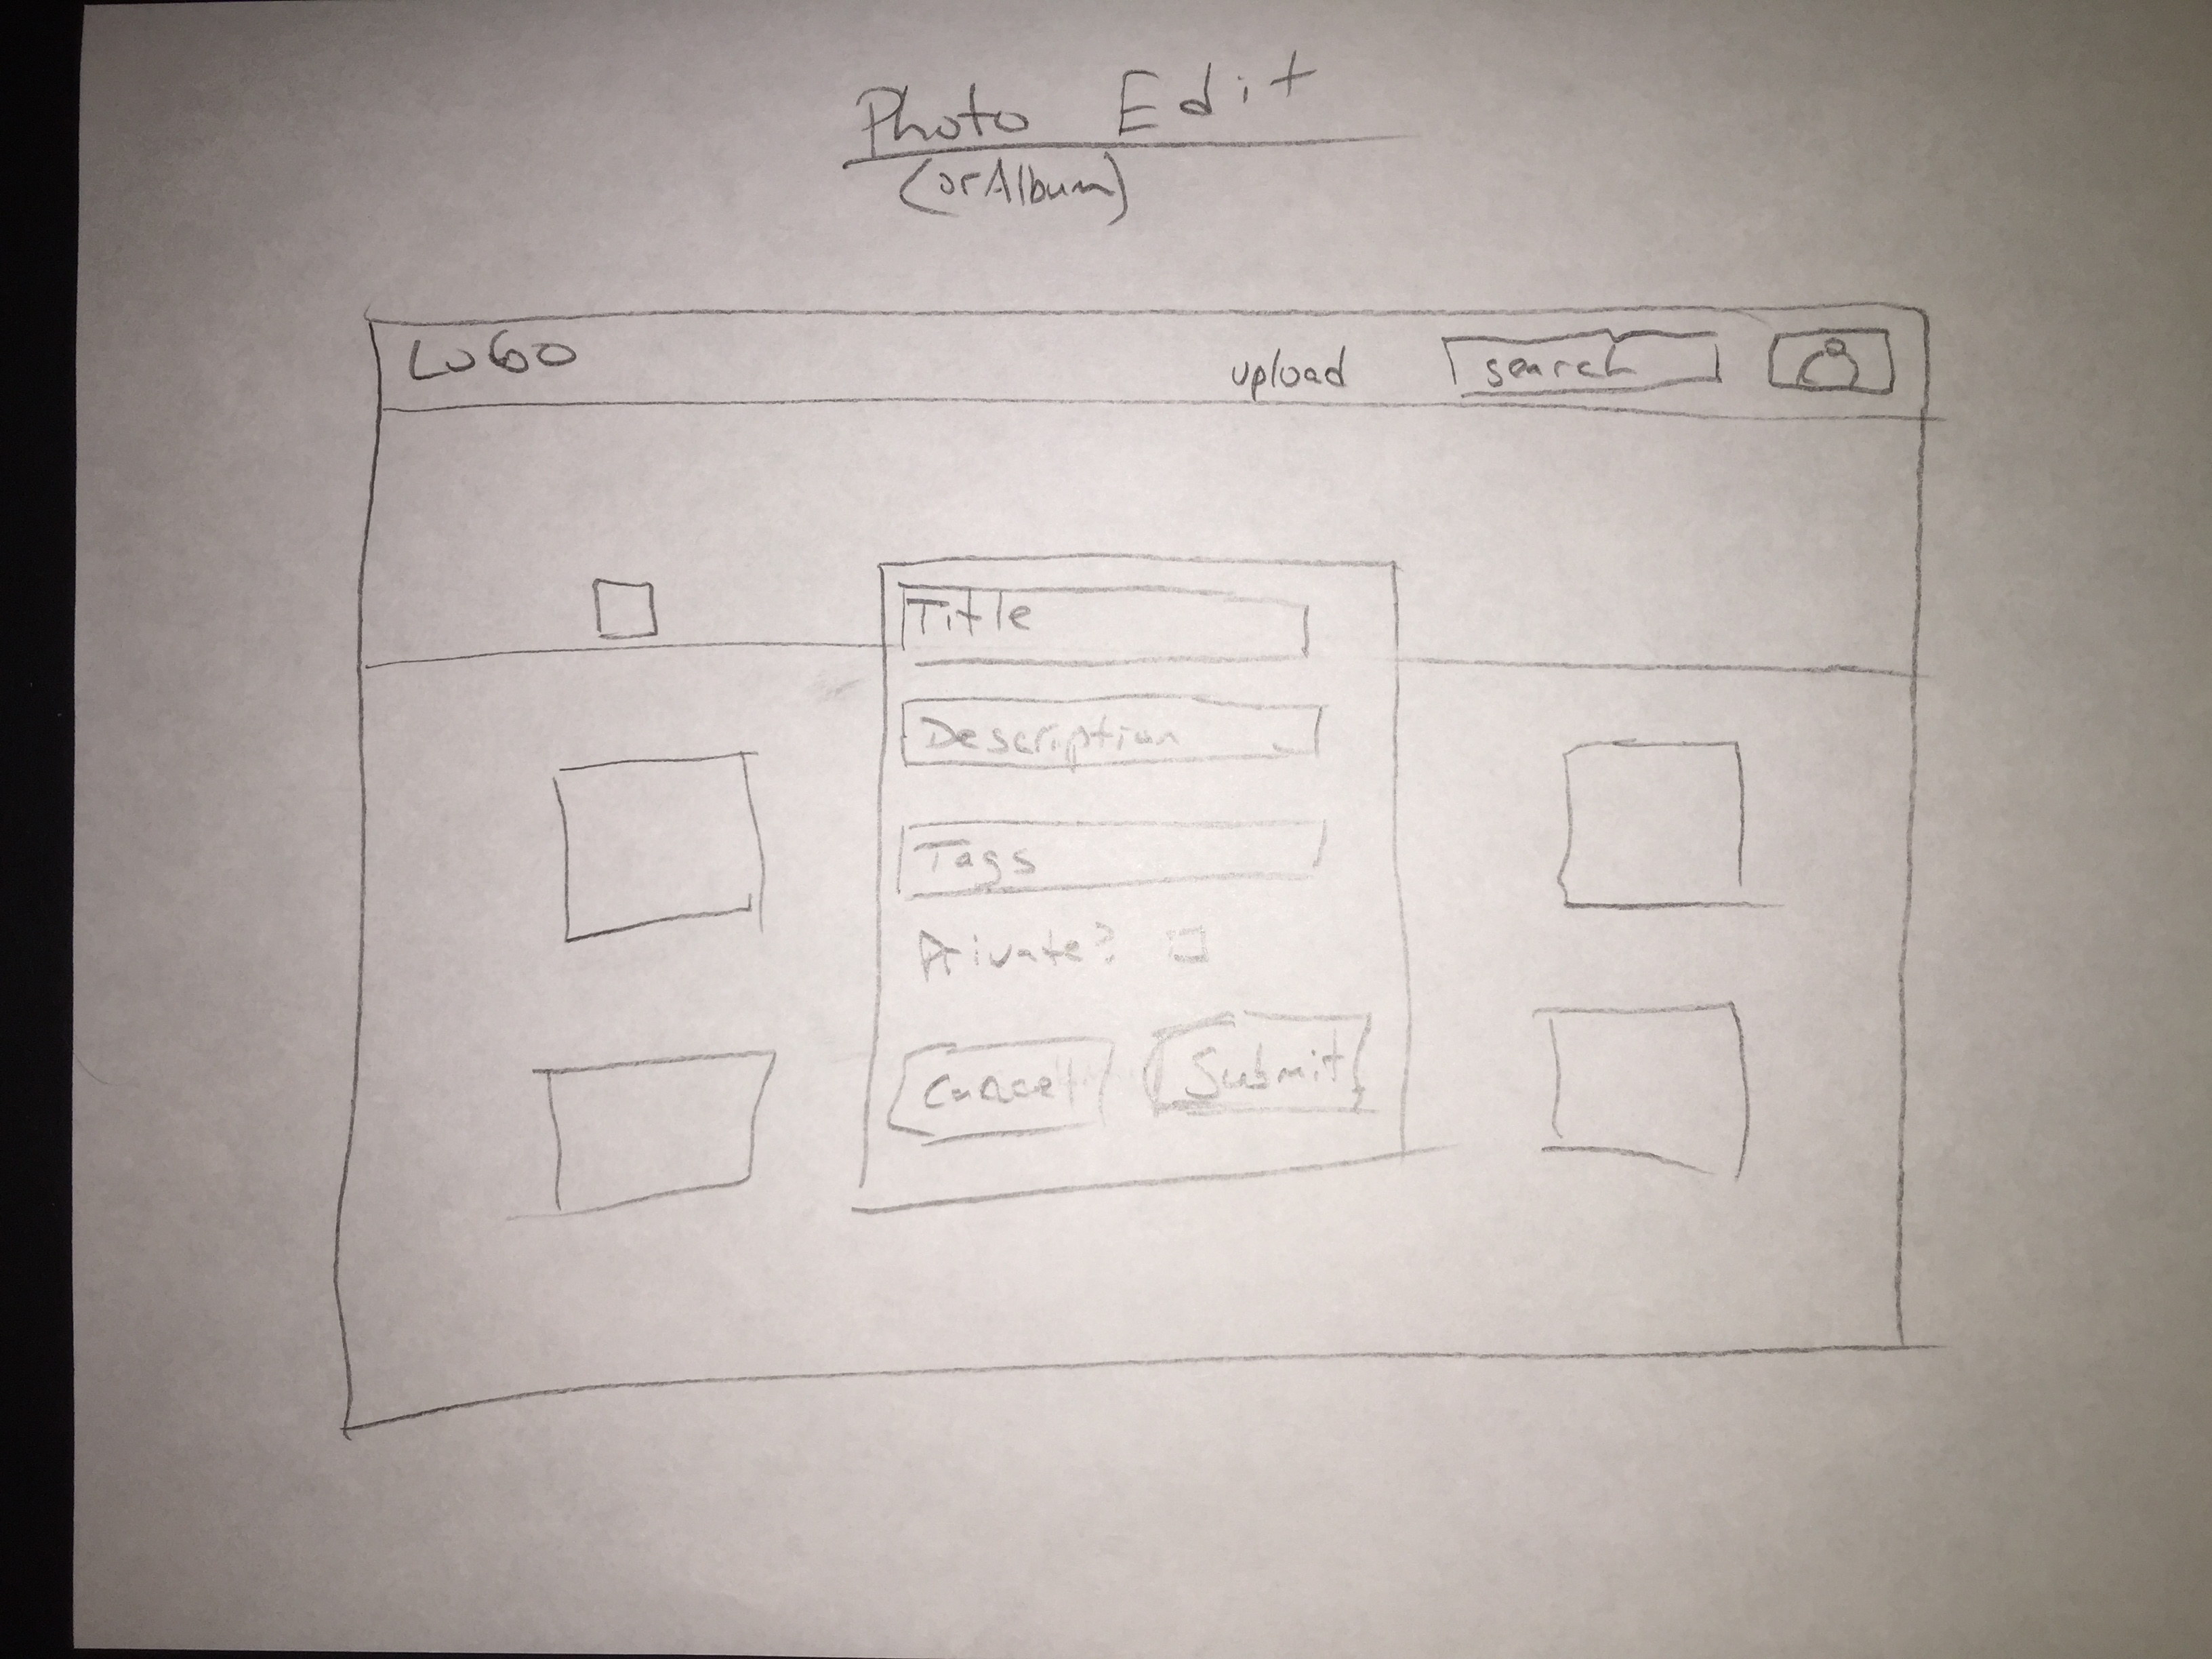 Photo Edit
(or Album)
LOGO
upload
search
Title
Description
Tags
Private?
Cancel
Submit